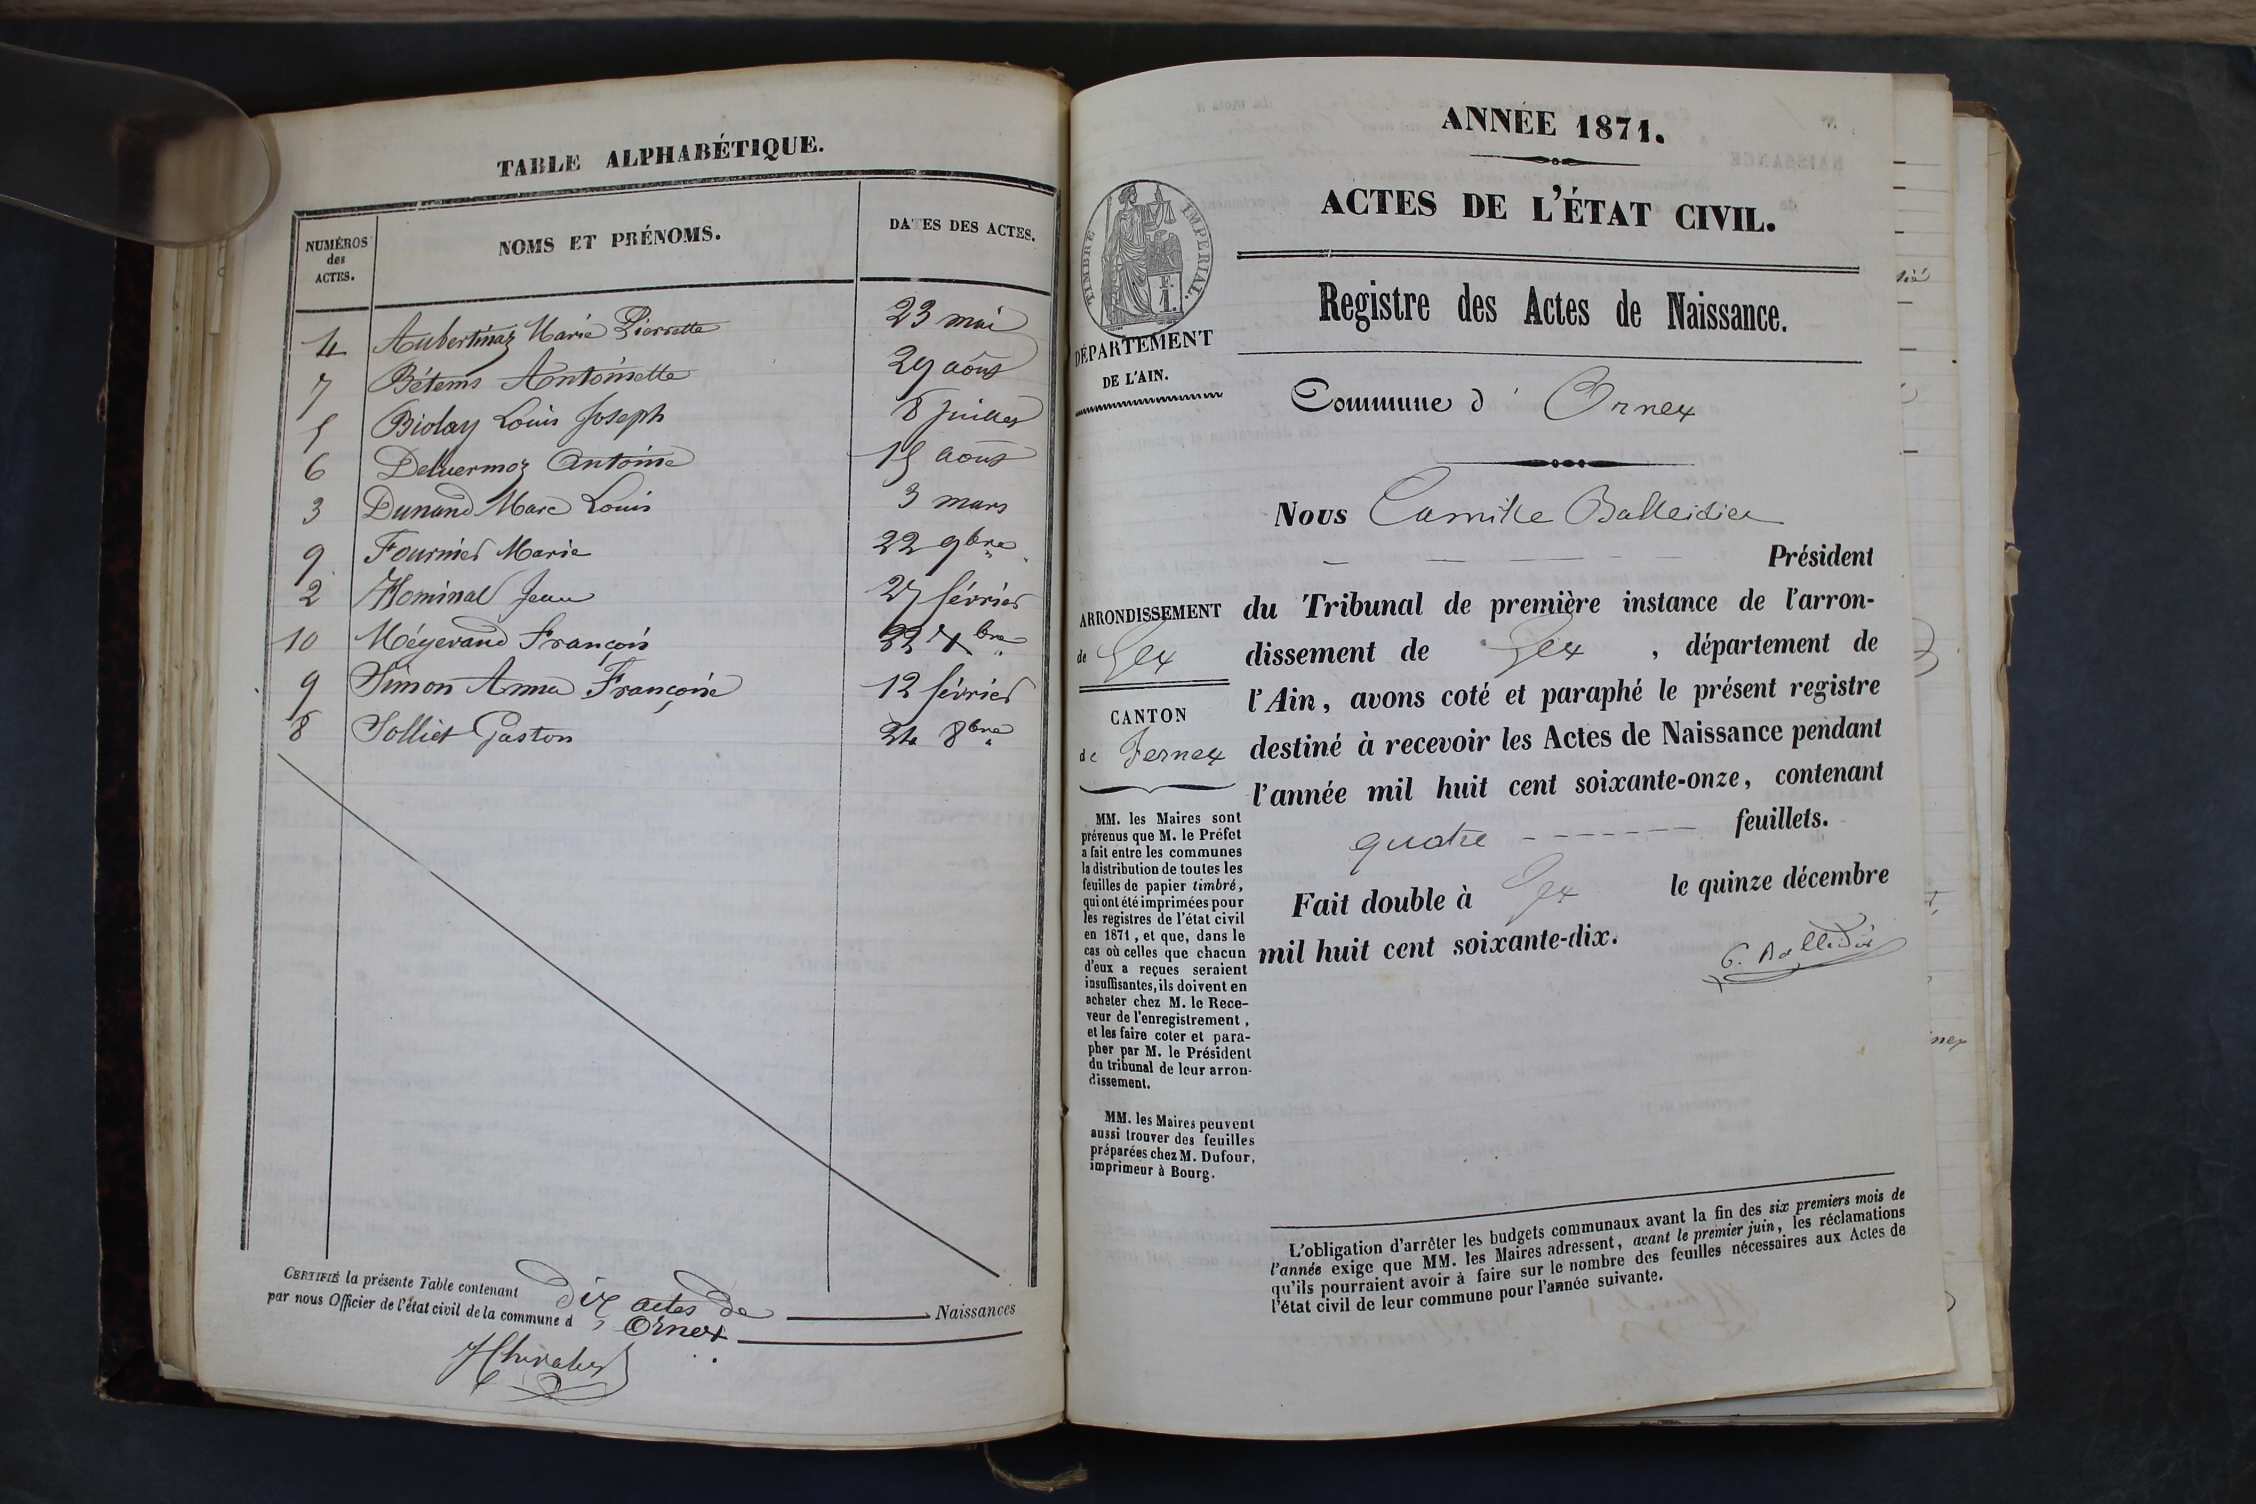 TABLE ALPHABÉTIQUE.
NUMÉROS des ACTES. NOMS ET PRÉNOMS. DATES DES ACTES.
4 Aubertinaz Marie Pierrette 23 mai
7 Bétems Antoinette 29 août
5 Biolay Louis Joseph 8 Juillet
6 Deluermoz Antoine 15 août
3 Dunand Marc Louis 3 mars
9 Fournier Marie 22 9bre
2 Hominal Jean 27 février
10 Mégevand François 22 Xbre
9 Simon Anna Françoise 12 février
8 Solliet Gaston 24 8bre
CERTIFIÉ la présente Table contenant dix actes de Naissances
par nous Officier de l'état civil de la commune d' Ornex
ANNÉE 1871.
ACTES DE L'ÉTAT CIVIL.
TIMBRE IMPERIAL.
F. 1.
DÉPARTEMENT
DE L'AIN.
Registre des Actes de Naissance.
Commune d' Ornex
Nous Camille Balleidier
Président
du Tribunal de première instance de l'arron-
dissement de Gex, département de
l'Ain, avons coté et paraphé le présent registre
destiné à recevoir les Actes de Naissance pendant
l'année mil huit cent soixante-onze, contenant
quatre feuillets.
Fait double à Gex le quinze décembre
mil huit cent soixante-dix.
ARRONDISSEMENT
de Gex
CANTON
de Fernex
MM. les Maires sont
prévenus que M. le Préfet
a fait entre les communes
la distribution de toutes les
feuilles de papier timbré,
qui ont été imprimées pour
les registres de l'état civil
en 1871, et que, dans le
cas où celles que chacun
d'eux a reçues seraient
insuffisantes, ils doivent en
acheter chez M. le Rece-
veur de l'enregistrement,
et les faire coter et para-
pher par M. le Président
du tribunal de leur arron-
dissement.
MM. les Maires peuvent
aussi trouver des feuilles
préparées chez M. Dufour,
imprimeur à Bourg.
L'obligation d'arrêter les budgets communaux avant la fin des six premiers mois de
l'année exige que MM. les Maires adressent, avant le premier juin, les réclamations
qu'ils pourraient avoir à faire sur le nombre des feuilles nécessaires aux Actes de
l'état civil de leur commune pour l'année suivante.